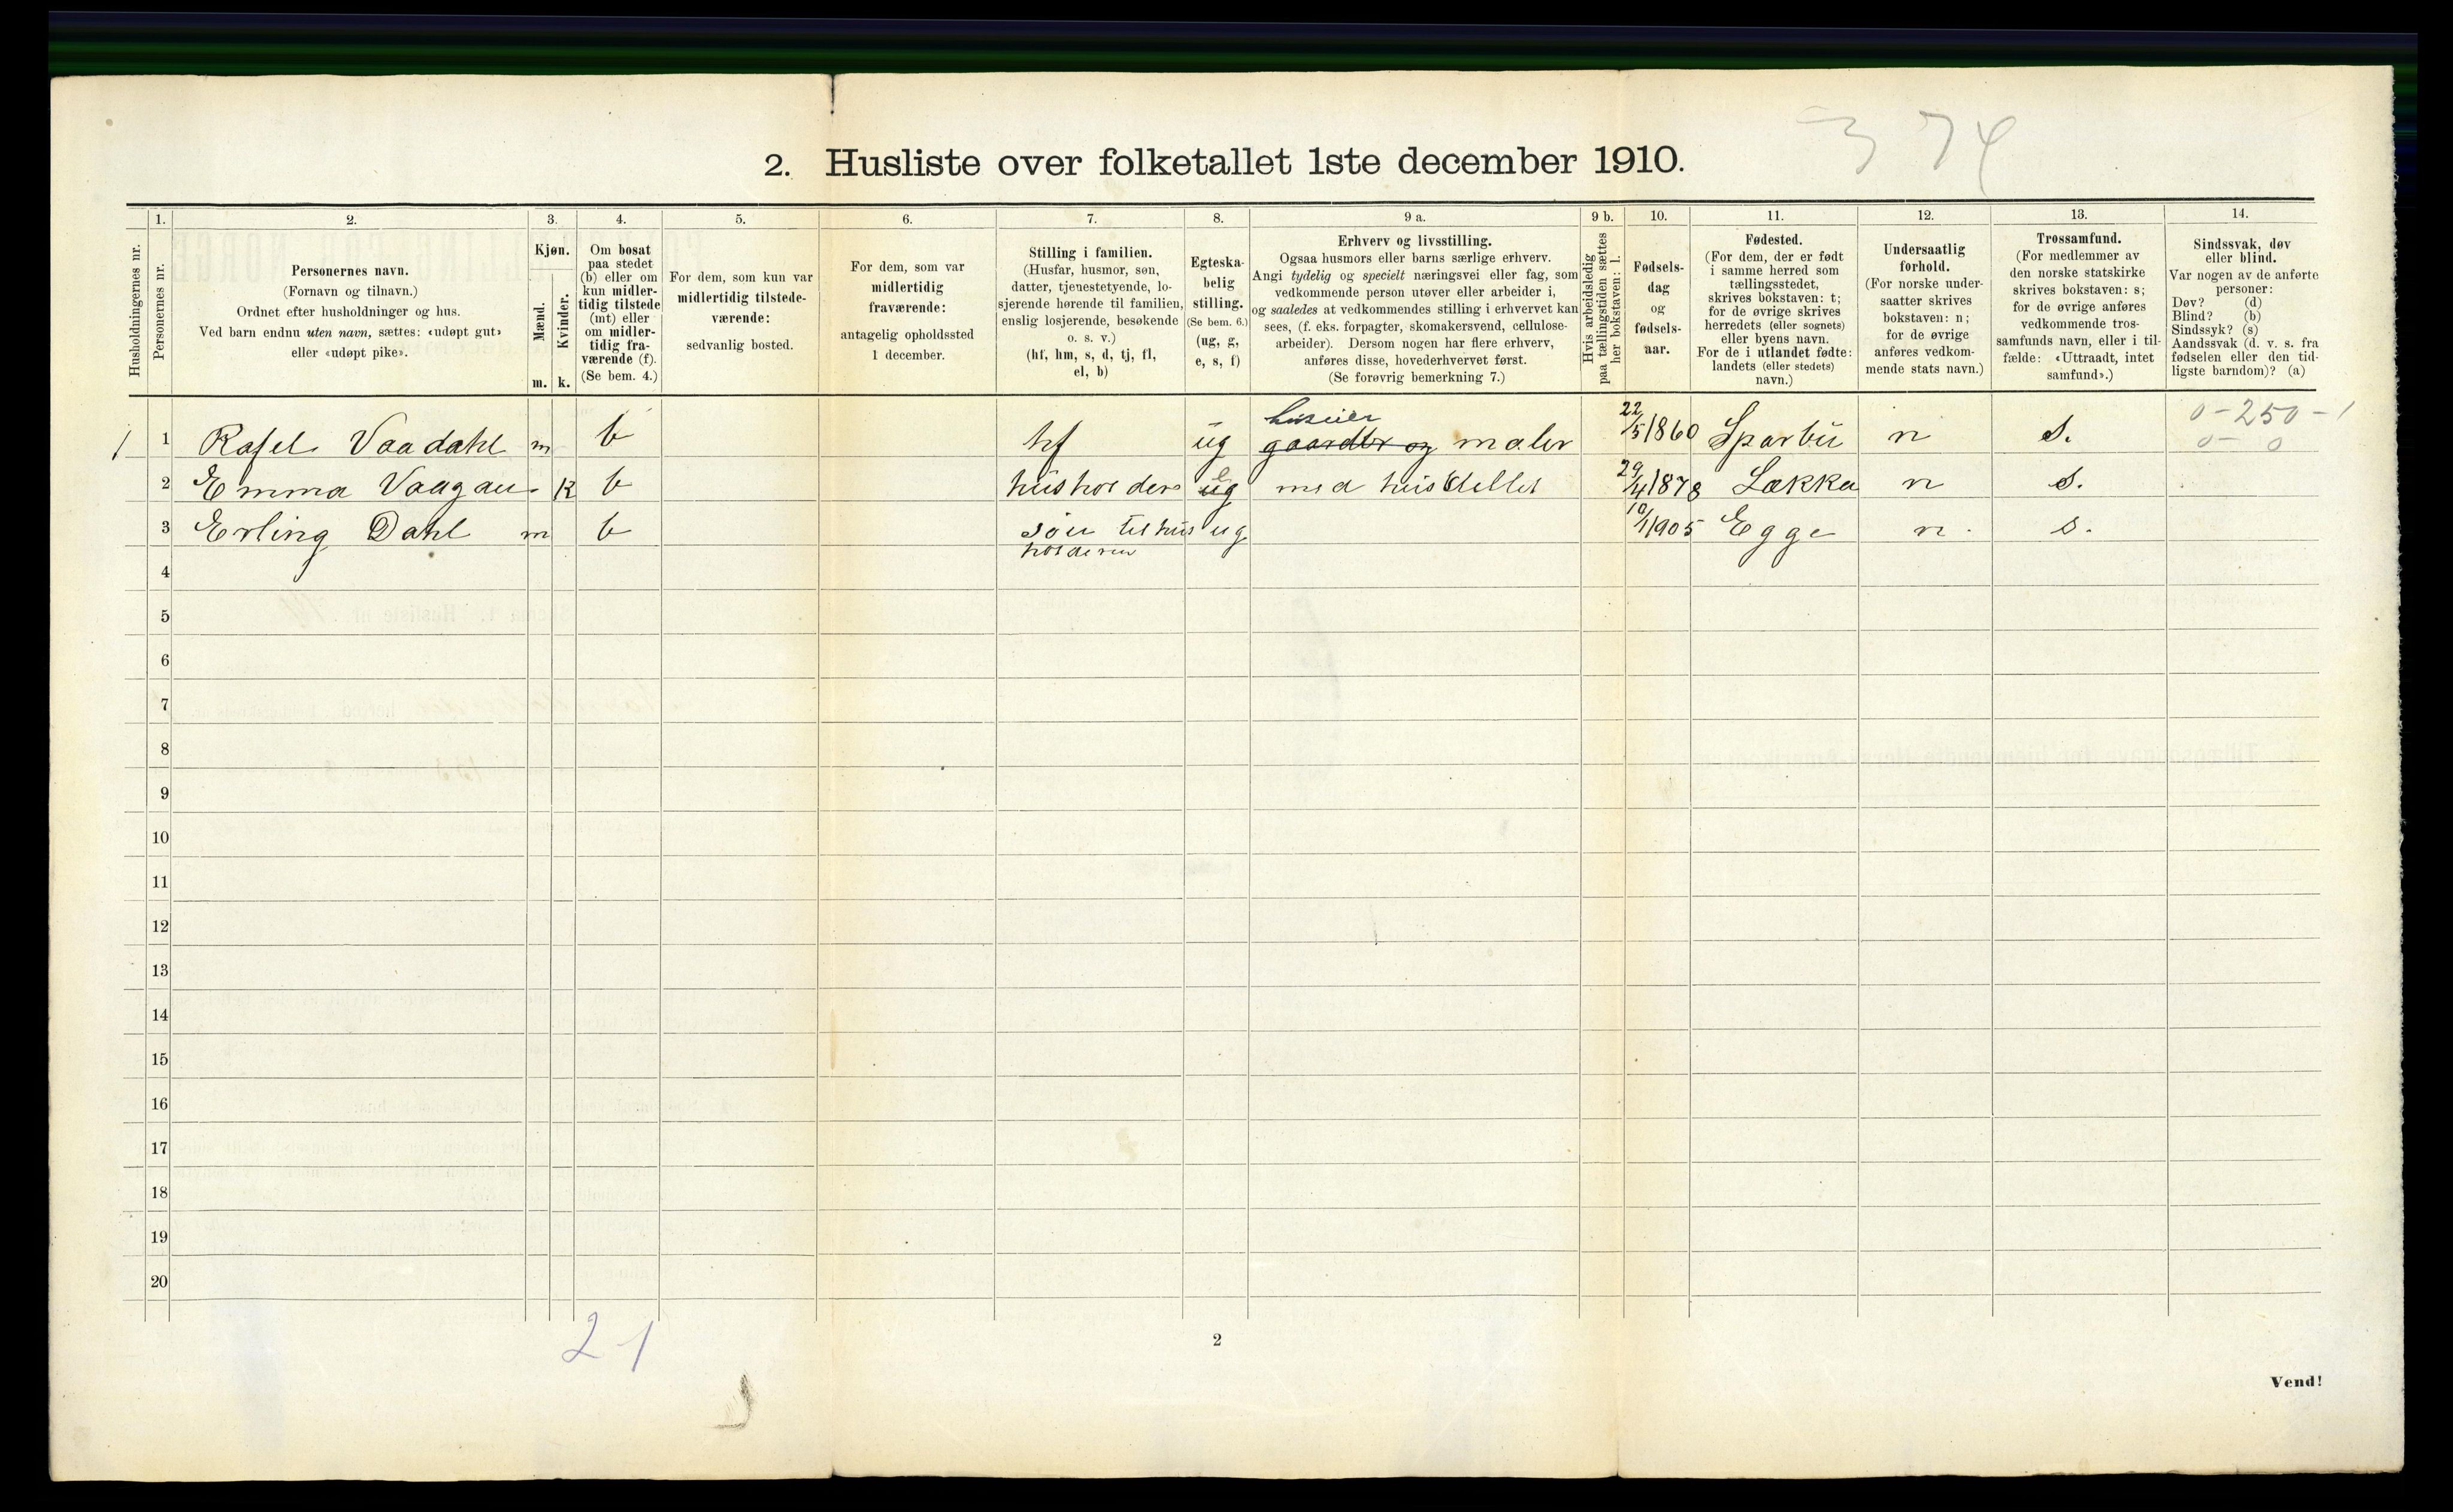 3 74
2. Husliste over folketallet 1ste december 1910.
1. 2. 3. 4. 5. 6. 7. 8. 9 a. 9 b. 10. 11. 12. 13. 14.
Husholdningernes nr.
Personernes nr.
Personernes navn.
(Fornavn og tilnavn.)
Ordnet efter husholdninger og hus.
Ved barn endnu uten navn, sættes: «udøpt gut»
eller «udøpt pike».
Kjøn.
Mænd.
Kvinder.
m. k.
Om bosat
paa stedet
(b) eller om
kun midler-
tidig tilstede
(mt) eller
om midler-
tidig fra-
værende (f).
(Se bem. 4.)
For dem, som kun var
midlertidig tilstede-
værende:
sedvanlig bosted.
For dem, som var
midlertidig
fraværende:
antagelig opholdssted
1 december.
Stilling i familien.
(Husfar, husmor, søn,
datter, tjenestetyende, lo-
sjerende hørende til familien,
enslig losjerende, besøkende
o. s. v.)
(hf, hm, s, d, tj, fl,
el, b)
Egteska-
belig
stilling.
(Se bem. 6.)
(ug, g,
e, s, f)
Erhverv og livsstilling.
Ogsaa husmors eller barns særlige erhverv.
Angi tydelig og specielt næringsvei eller fag, som
vedkommende person utøver eller arbeider i,
og saaledes at vedkommendes stilling i erhvervet kan
sees, (f. eks. forpagter, skomakersvend, cellulose-
arbeider). Dersom nogen har flere erhverv,
anføres disse, hovederhvervet først.
(Se forøvrig bemerkning 7.)
Hvis arbeidsledig
paa tællingstiden sættes
her bokstaven: l.
Fødsels-
dag
og
fødsels-
aar.
Fødested.
(For dem, der er født
i samme herred som
tællingsstedet,
skrives bokstaven: t;
for de øvrige skrives
herredets (eller sognets)
eller byens navn.
For de i utlandet fødte:
landets (eller stedets)
navn.)
Undersaatlig
forhold.
(For norske under-
saatter skrives
bokstaven: n;
for de øvrige
anføres vedkom-
mende stats navn.)
Trossamfund.
(For medlemmer av
den norske statskirke
skrives bokstaven: s;
for de øvrige anføres
vedkommende tros-
samfunds navn, eller i til-
fælde: «Uttraadt, intet
samfund».)
Sindssvak, døv
eller blind.
Var nogen av de anførte
personer:
Døv? (d)
Blind? (b)
Sindssyk? (s)
Aandssvak (d. v. s. fra
fødselen eller den tid-
ligste barndom)? (a)
huseier 0-250-1
1 1 Rafel Vaadahl m b hf ug gaardbr og maler 22/5 1860 Sparbu n s. 0- 0
2 Emma Vaagan k b husholders ug med husstellet 29/4 1878 Lækka n s.
3 Erling Dahl m b søn til hus ug 10/1 1905 Egge n. s.
holderen
4
5
6
7
8
9
10
11
12
13
14
15
16
17
18
19
20
2 1
2
Vend!